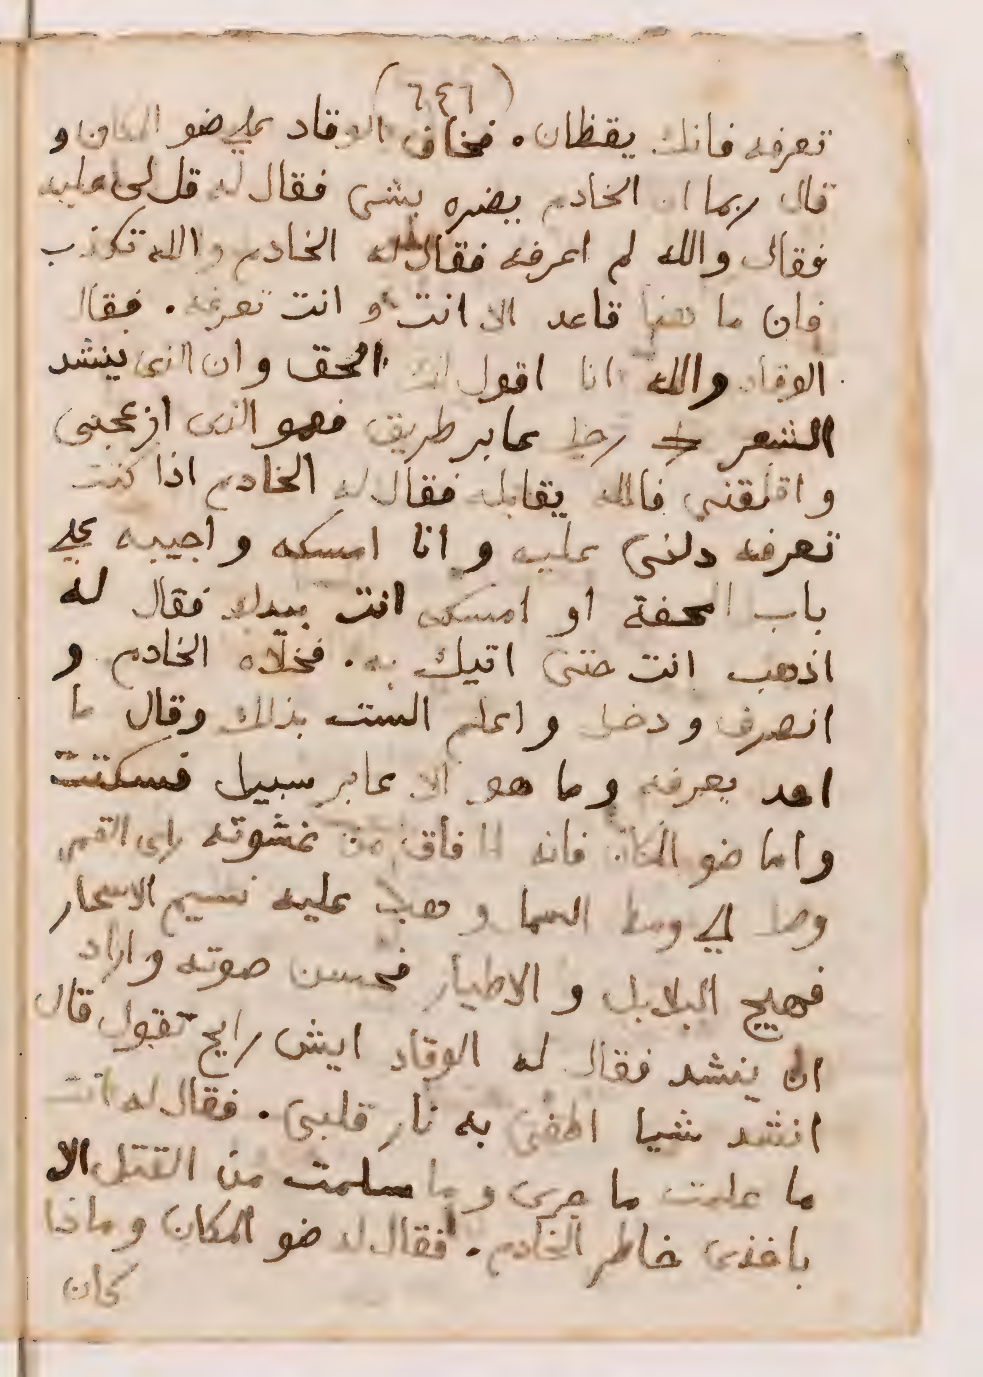 (٦٤٦)
تعرفه فانك يقظان. فخاف الوقاد علي ضو المكان و
قال ربما ان الخادم يضره بشي فقال له قل لي عليه
فقال والله لم اعرفه فقال له الخادم والله تكذب
فان ما هنا قاعد الا انت و انت تعرفه. فقال
الوقاد والله انا اقول لك الحق وان الذي ينشد
الشعر رجل عابر طريق فهو الذي ازعجني
و اقلقني فالله يقابله فقال له الخادم اذا كنت
تعرفه دلني عليه و انا امسكه و اجيبه علي
باب المحفة او امسكه انت بيدك فقال له
اذهب انت حتي اتيك به. فخلاه الخادم و
انصرف و دخل و اعلم الست بذلك وقال ما
احد يعرفه وما هو الا عابر سبيل فسكتت
واما ضو المكان فانه لما فاق من غشوته راي القمر
وصل الي وسط السما و هب عليه نسيم الاسحار
فهيج البلابل و الاطيار فحسن صوته واراد
ان ينشد فقال له الوقاد ايش رايح تقول قال
انشد شيا اطفي به نار قلبي. فقال له انت
ما علمت ما جري وما سلمت من القتل الا
باخذي خاطر الخادم. فقال له ضو المكان وماذا
كان